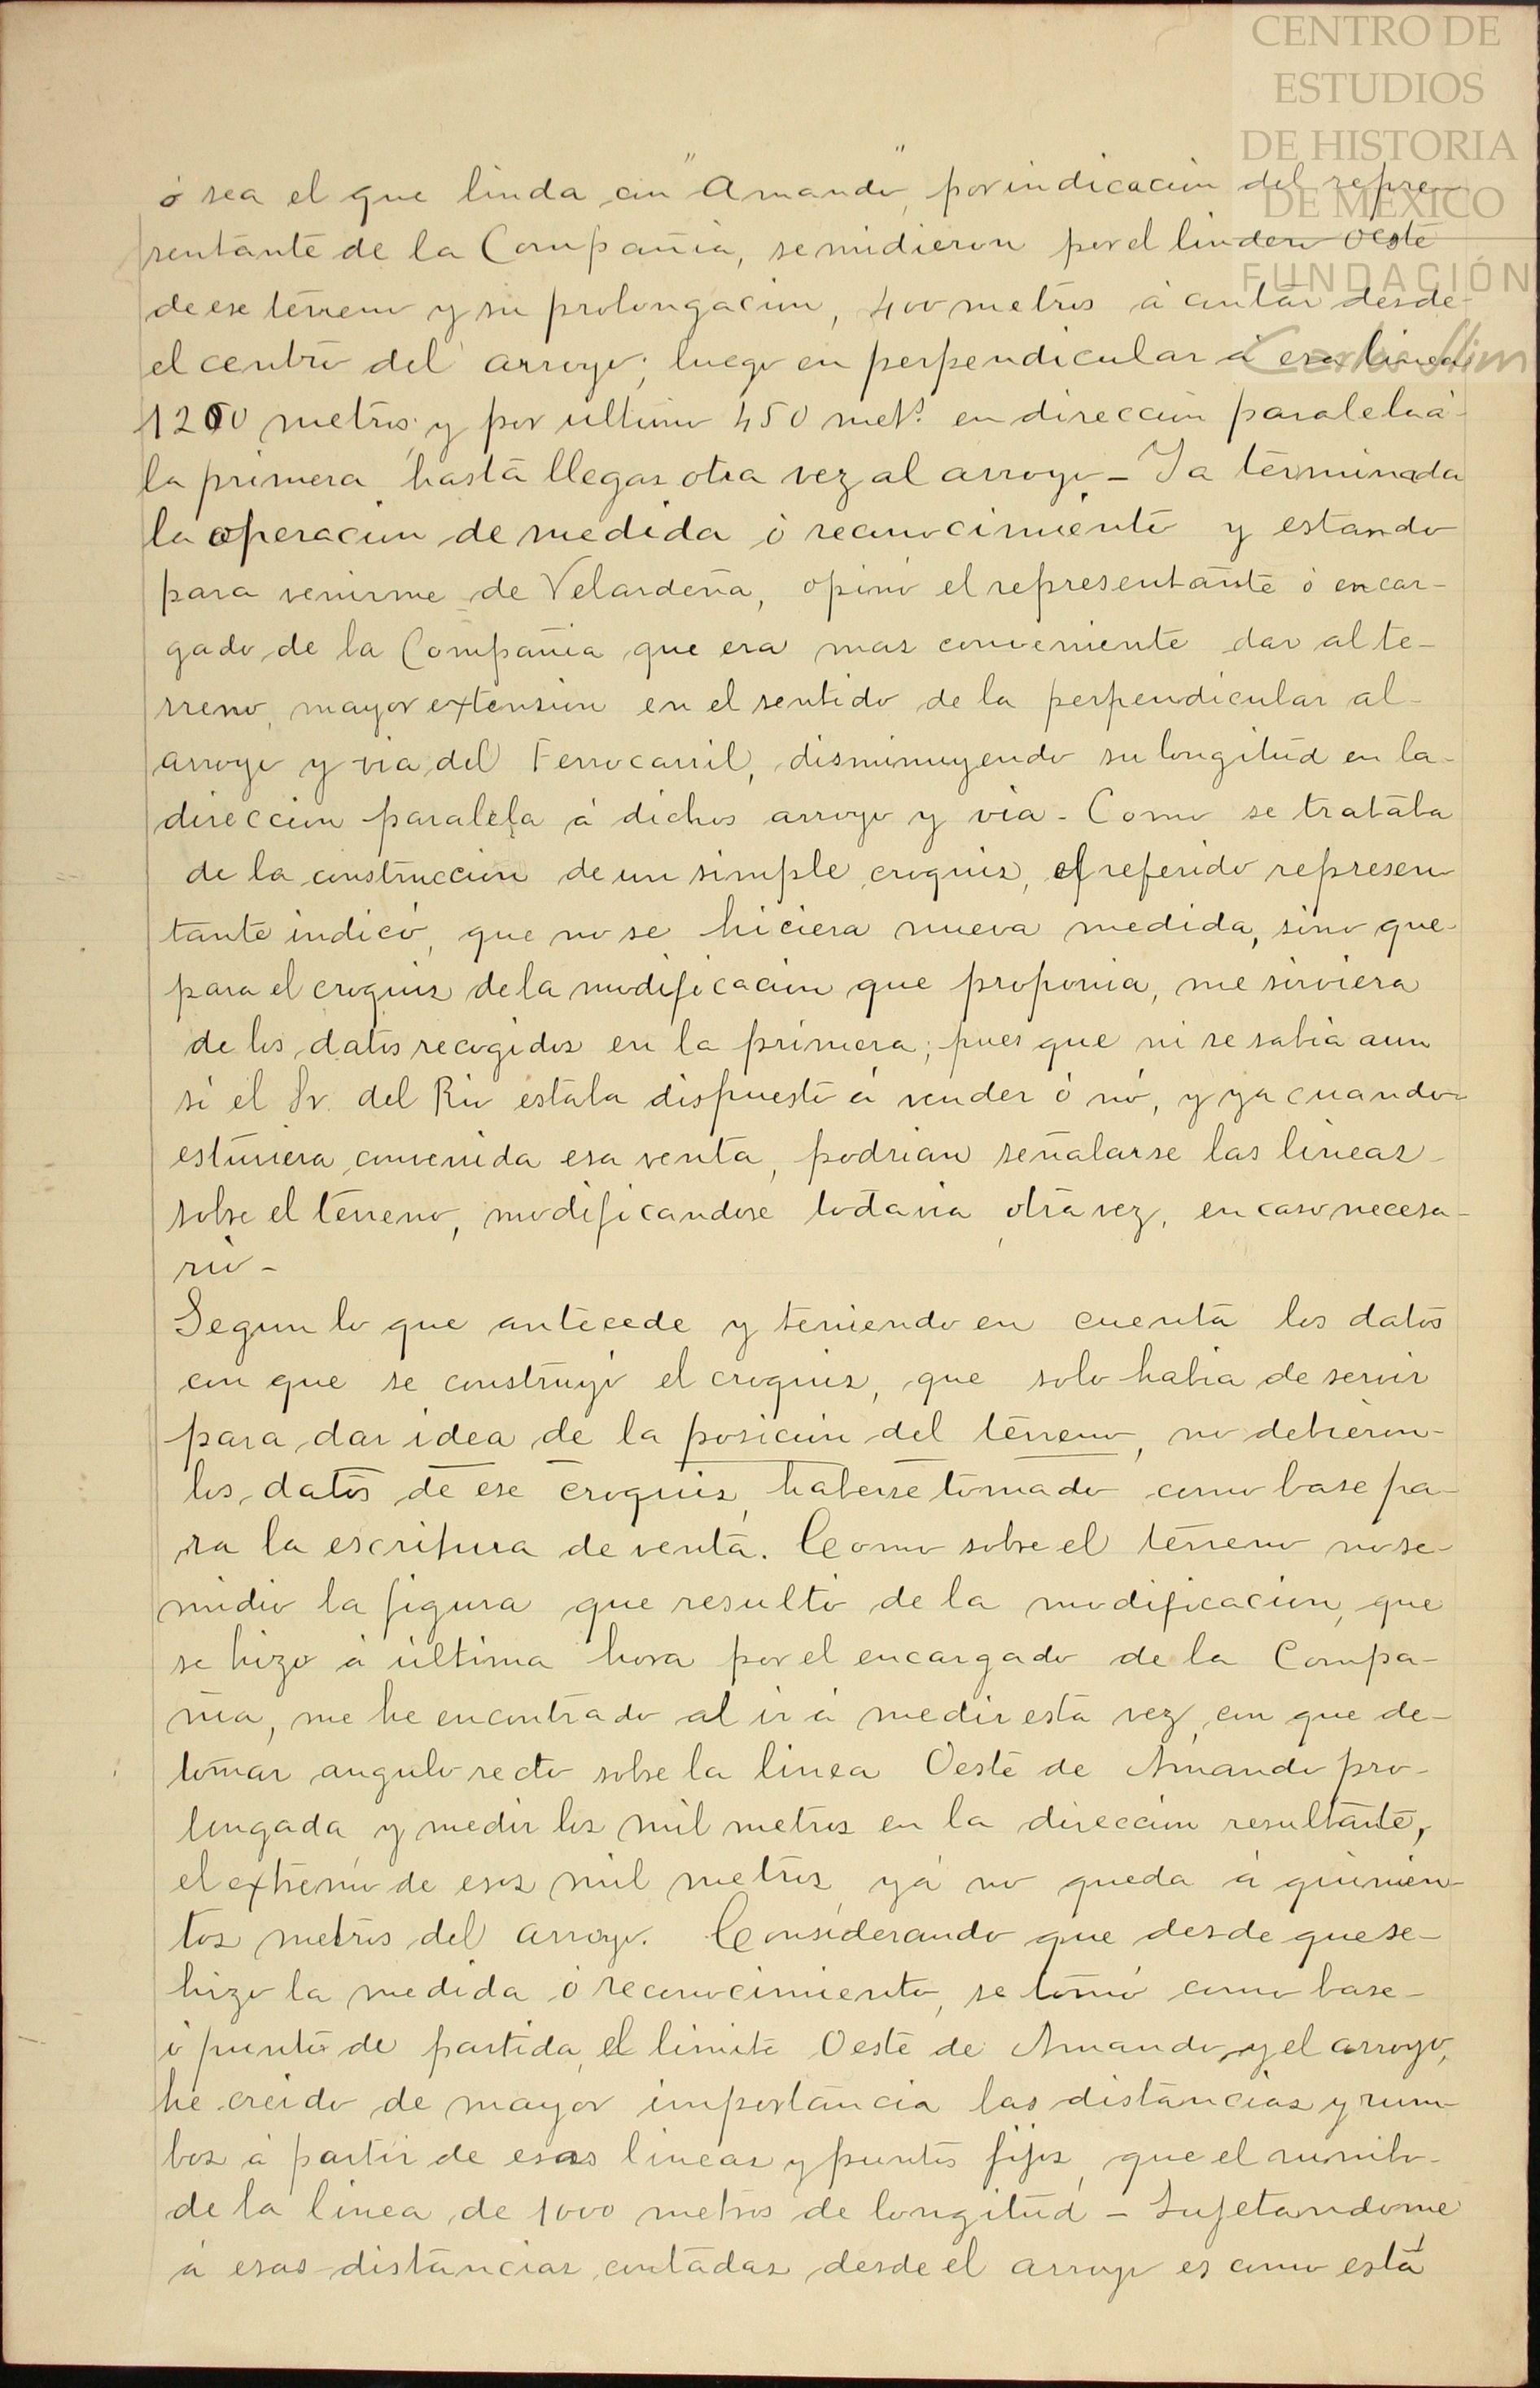 CENTRO DE
ESTUDIOS
DE HISTORIA
DE MÉXICO
FUNDACIÓN
Carlos Slim
ó sea el que linda con "Amando", por indicacion del repre-
sentante de la Compañia, se midieron por el lindero Oeste
de ese terreno y su prolongacion, 400 metros á contar desde
el centro del arroyo; luego en perpendicular á esa linea
1200 metros y por ultimo 450 met.s en direccion paralela á
la primera hasta llegar otra vez al arroyo - Ya terminada
la operacion de medida ó reconocimiento y estando
para venirme de Velardeña, opinó el representante ó encar-
gado de la Compañia que era mas conveniente dar al te-
rreno, mayor extension en el sentido de la perpendicular al
arroyo y via del Ferrocarril, disminuyendo su longitud en la
direccion paralela á dichos arroyo y via - Como se trataba
de la construccion de un simple croquis, el referido represen
tante indicó, que no se hiciera nueva medida, sino que
para el croquis de la modificacion que proponia, me sirviera
de los datos recogidos en la primera; pues que ni se sabia aun
si el Sr. del Rio estaba dispuesto á vender ó nó, y ya cuando
estuviera convenida esa venta, podrian señalarse las lineas
sobre el terreno, modificandose todavia otra vez, en caso necesa-
rio -
Segun lo que antecede y teniendo en cuenta los datos
con que se construyó el croquis, que solo habia de servir
para dar idea de la posicion del terreno, no debieron
los datos de ese croquis, haberse tomado como base pa-
ra la escritura de venta. Como sobre el terreno no se
midió la figura que resultó de la modificacion, que
se hizo á última hora por el encargado de la Compa-
ñia, me he encontrado al ir á medir esta vez, con que de
tomar angulo recto sobre la linea Oeste de Amando pro-
longada y medir los mil metros en la direccion resultante,
el extremo de esos mil metros ya no queda á quinien-
tos metros del arroyo. Considerando que desde que se
hizo la medida ó reconocimiento, se tomó como base
ó punto de partida, el limite Oeste de Amando, y el arroyo,
he creido de mayor importancia las distancias y rum-
bos á partir de esas lineas y puntos fijos, que el rumbo
de la linea de 1000 metros de longitud - Sujetandome
á esas distancias, contadas desde el arroyo es como está